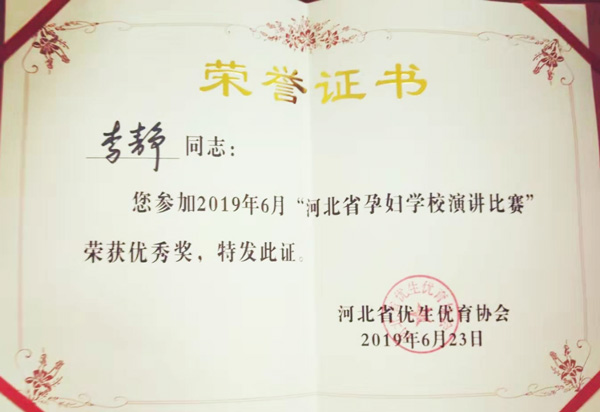 荣誉证书
李静同志：
您参加2019年6月“河北省孕妇学校演讲比赛”
荣获优秀奖，特发此证。
河北省优生优育协会
2019年6月23日